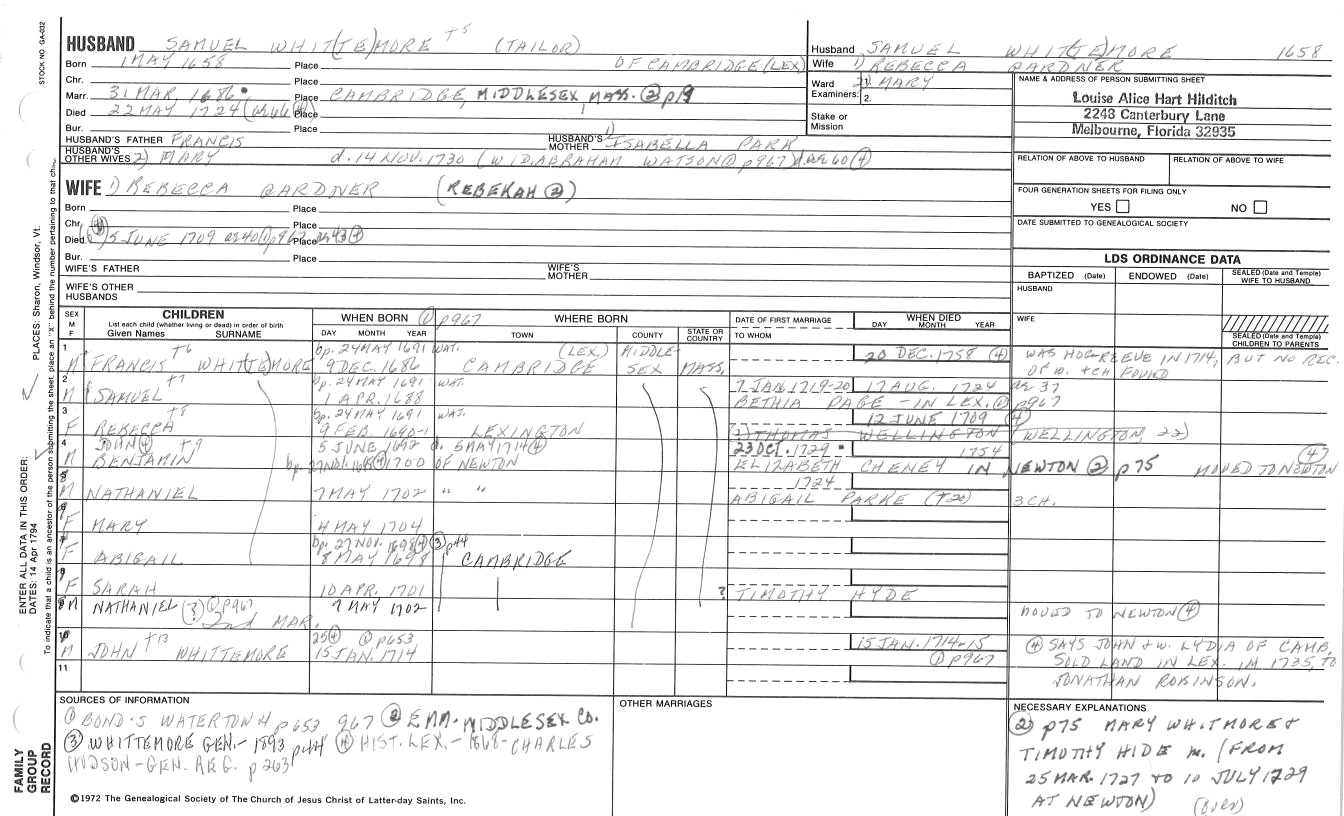 STOCK NO. GA-032
PLACES: Sharon, Windsor, Vt.
ENTER ALL DATA IN THIS ORDER:
DATES: 14 Apr 1794
To indicate that a child is an ancestor of the person submitting the sheet, place an "X" behind the number pertaining to that
FAMILY GROUP RECORD
HUSBAND SAMUEL WHIT(TE)MORE T5 (TAILOR)
Born 1 MAY 1658 Place OF CAMBRIDGE (LEX)
Chr. Place
Marr. 31 MAR 1686 Place CAMBRIDGE, MIDDLESEX, MASS. ② p19
Died 22 MAY 1724 (ae 66 ④) Place
Bur. Place
HUSBAND'S FATHER FRANCIS HUSBAND'S MOTHER 1) ISABELLA PARK
HUSBAND'S OTHER WIVES 2) MARY d. 14 NOV. 1730 (WID. ABRAHAM WATSON ① p967) d. ae 60 ④
WIFE 1) REBECCA GARDNER (REBEKAH ②)
Born Place
Chr. Place
Died 5 JUNE 1709 ae 40 ① p967 Place ae 43 ④
Bur. Place
WIFE'S FATHER WIFE'S MOTHER
WIFE'S OTHER HUSBANDS
Husband SAMUEL WHIT(TE)MORE 1658
Wife 1) REBECCA GARDNER
2) MARY
Ward Examiners: 1. 2.
Stake or Mission
NAME & ADDRESS OF PERSON SUBMITTING SHEET
Louise Alice Hart Hilditch
2243 Canterbury Lane
Melbourne, Florida 32935
RELATION OF ABOVE TO HUSBAND RELATION OF ABOVE TO WIFE
FOUR GENERATION SHEETS FOR FILING ONLY
YES NO
DATE SUBMITTED TO GENEALOGICAL SOCIETY
LDS ORDINANCE DATA
BAPTIZED (Date) ENDOWED (Date) SEALED (Date and Temple) WIFE TO HUSBAND
HUSBAND
WIFE
SEALED (Date and Temple) CHILDREN TO PARENTS
SEX M F CHILDREN WHEN BORN ① p967 WHERE BORN DATE OF FIRST MARRIAGE WHEN DIED
List each child (whether living or dead) in order of birth
Given Names SURNAME DAY MONTH YEAR TOWN COUNTY STATE OR COUNTRY TO WHOM DAY MONTH YEAR
1 bp. 24 MAY 1691 WAT. (LEX.) MIDDLE- 20 DEC. 1758 ④ WAS HOG-REEVE IN 1714, BUT NO REC.
M FRANCIS T6 WHIT(TE)MORE 9 DEC. 1686 CAMBRIDGE SEX MASS. OF W. + CH FOUND
2 bp. 24 MAY 1691 WAT. 7 JAN 1719-20 17 AUG. 1724 ae 37
M SAMUEL T7 1 APR. 1688 BETHIA PAGE - IN LEX. ① p967
3 bp. 24 MAY 1691 WAT. 12 JUNE 1709 ④
F REBECCA T8 9 FEB 1690-1 LEXINGTON 1) THOMAS WELLINGTON (WELLINGTON, 22)
4 JOHN ④ T9 5 JUNE 1692 d. 5 MAY 1714 ④ 23 OCT. 1729 1754 ④
M BENJAMIN bp. 27 NOV. ④ 1700 OF NEWTON ELIZABETH CHENEY IN NEWTON ② p75 MOVED TO NEWTON
5 1724
M NATHANIEL 7 MAY 1702 " " ABIGAIL PARKE (T20) 3 CH.
F MARY 4 MAY 1704
bp. 27 NOV. 1698 ④ ③ p44
F ABIGAIL 8 MAY 1698 CAMBRIDGE
F SARAH 10 APR. 1701 ? TIMOTHY HYDE
M NATHANIEL (?) ① p967 7 MAY 1702 MOVED TO NEWTON ④
2nd MAR.
10 25 ④ ① p653 15 JAN. 1714-15 ④ SAYS JOHN + W. LYDIA OF CAMB,
M JOHN T13 WHITTEMORE 15 JAN. 1714 ① p967 SOLD LAND IN LEX. IM 1735, TO
11 JONATHAN ROBINSON.
SOURCES OF INFORMATION
① BOND'S WATERTOWN p653 967 ② EMM. MIDDLESEX CO.
③ WHITTEMORE GEN. - 1893 p44 ④ HIST. LEX. - 1868 - CHARLES
HUDSON - GEN. REG. p263
©1972 The Genealogical Society of The Church of Jesus Christ of Latter-day Saints, Inc.
OTHER MARRIAGES
NECESSARY EXPLANATIONS
② p75 MARY WHITMORE +
TIMOTHY HIDE m. (FROM
25 MAR. 1727 TO 10 JULY 1729
AT NEWTON) (OVER)